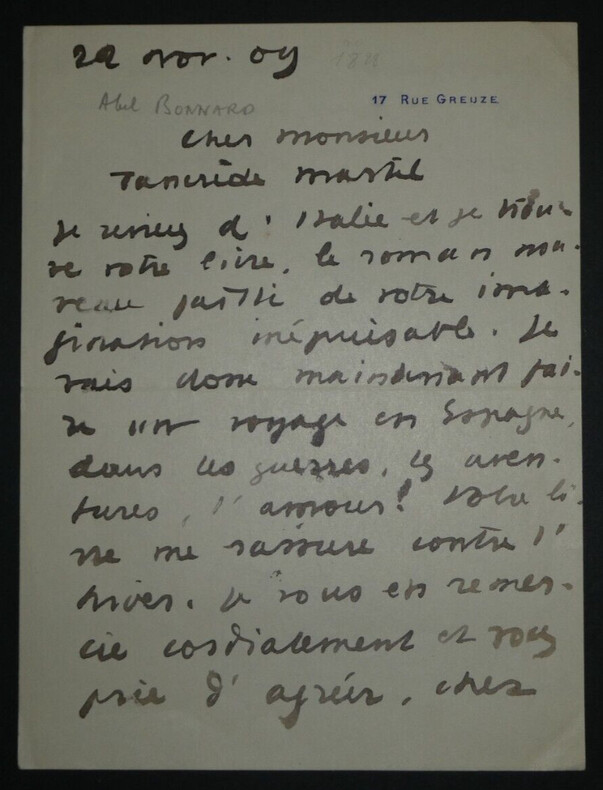 22 nov. 09
Abel BONNARD
17 RUE GREUZE
Cher monsieur
Tancrède Martel
Je reviens d'Italie et je trou-
ve votre livre, le roman nou-
veau parti de votre ima-
gination inépuisable. Je
vais donc maintenant fai-
re un voyage en Espagne,
dans les guerres, les aven-
tures, l'amour! Votre li-
vre me rassure contre l'
hiver. Je vous en remer-
cie cordialement et vous
prie d'agréer, cher